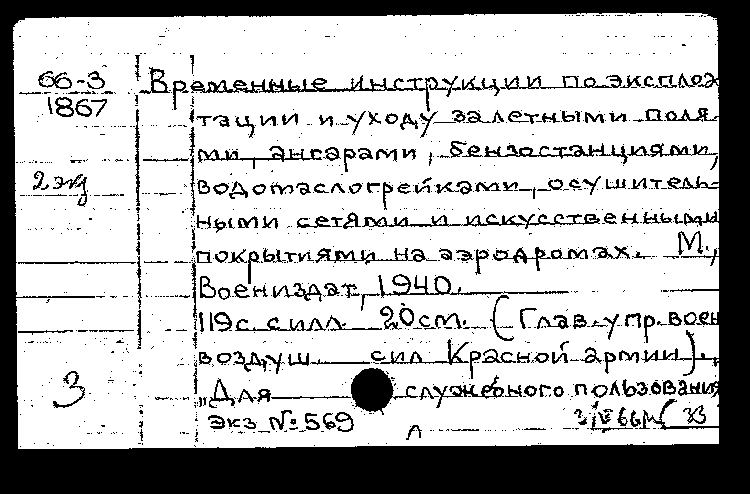 66-3 Временные инструкции по эксплоа
1867 тации и уходу за летными поля
ми, ангарами, бензостанциями,
2 экз водомаслогрейками, осушитель-
ными сетями и искусственными
покрытиями на аэродромах. М.,
Воениздат, 1940.
119 с. с илл. 20 см. (Глав. упр. воен
воздуш. сил Красной армии).
3 „Для служебного пользования
экз № 569